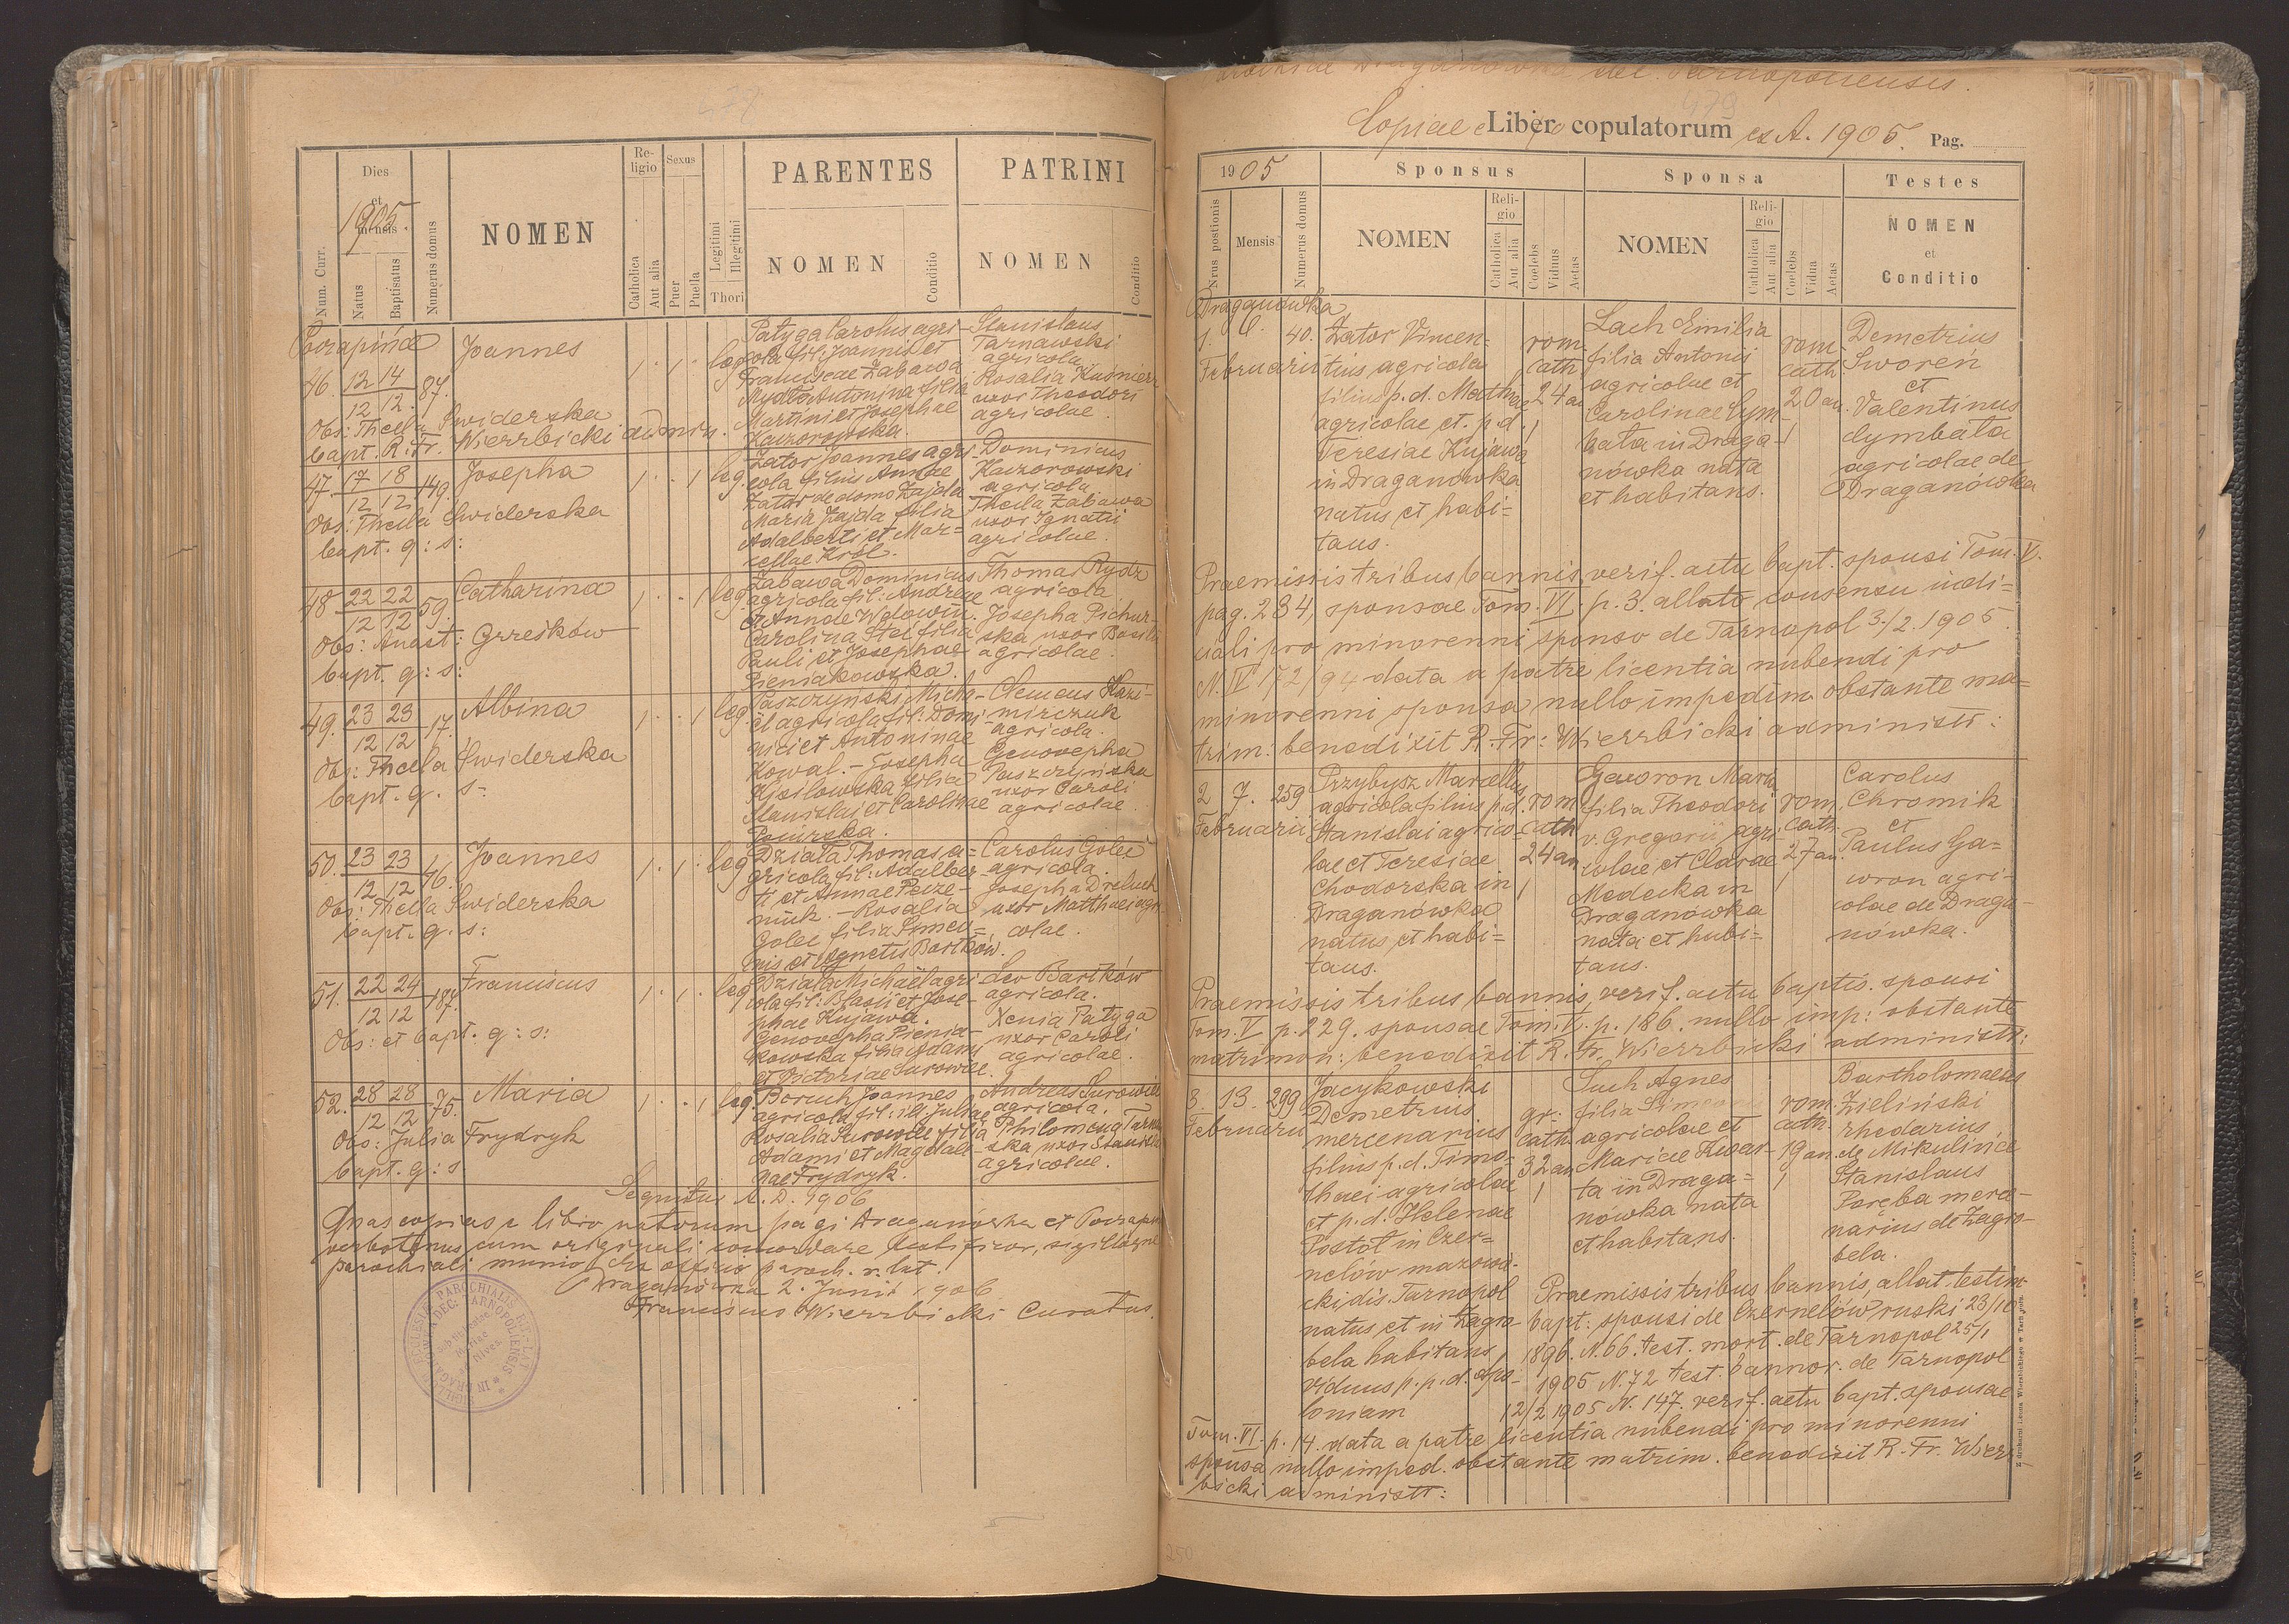 Dies
et
mensis
1905
Num. Curr.
Natus
Baptisatus
Numerus domus
NOMEN
Re-
ligio
Catholica
Aut alia
Sexus
Puer
Puella
Legitimi
Illegitimi
Thori
PARENTES
NOMEN
Conditio
PATRINI
NOMEN
Conditio
Poczapińce
46. 12 14 87. Joannes 1 . 1 . leg.
12 12
Obs: Thecla Swiderska
bapt. R. Fr. Wierzbicki admin.
Patyga Carolus agri-
cola fil. Joannis et
Franciscae Zabawa
Rydz Antonina filia
Martini et Josephae
Kaczorowska.
Stanislaus
Tarnawski
agricola
Rosalia Kusnierz
uxor Theodori
agricolae.
47. 17 18 149. Josepha 1 . . 1 leg.
12 12
Obs: Thecla Swiderska
bapt. q: s:
Zator Joannes agri-
cola filius Annae
Zator de domo Zajda
Maria Zajda filia
Adalberti et Mar=
cellae Król.
Dominicus
Kaczorowski
agricola
Thecla Zabawa
uxor Ignatii
agricolae.
48. 22 22 59. Catharina 1 . . 1 leg.
12 12
Obs: Anast: Grześków
bapt. q: s:
Zabawa Dominicus
agricola fil: Andreae
et Annae Wdowin.
Carolina Stec filia
Pauli et Josephae
Pieniakowska.
Thomas Rydz
agricola
Josepha Pichur-
ska uxor Basilii
agricolae.
49. 23 23 17. Albina 1 . . 1 leg.
12 12
Obs: Thecla Swiderska
bapt. q. s:
Paszczyński Micha-
el agricola fil: Domi-
nici et Antoninae
Kowal. - Josepha
Kisilowska filia
Stanislai et Carolinae
Clemens Kazi-
mirczuk
agricola.
Genovepha
Paszczyńska
uxor Caroli
agricolae.
50. 23 23 46. Joannes 1 . 1 . leg
12 12
Obs: Thecla Swiderska
bapt. q. s:
Działa Thomas a=
gricola fil: Adalber-
ti et Annae
- Rosalia
Golec filia Simeo=
nis et Agnetis Bartków.
Carolus Golec
agricola.
Josepha Dreluch
uxor Matthaei agri-
colae.
51. 22 24 187. Franciscus 1 . 1 . leg
12 12
Obs: et bapt. q: s:
Działa Michael agri-
cola fil: Blasii et Jose-
phae Kujawa.
Genovepha Pienia-
kowska filia Adami
et Victoriae Surowiec.
Leo Bartków
agricola.
Xenia Patyga
uxor Caroli
agricolae.
52. 28 28 75. Maria 1 . . 1 leg.
12 12
Obs: Julia Frydryk
bapt. q: s
Boruch Joannes
agricola fil: ill. Juliae
Rosalia Surowiec filia
Adami et Magdale-
nae Frydryk.
Andreas Surowiec
agricola.
Philomena Tarnaw
ska uxor Stanislai
agricolae.
Sequitur A. D. 1906
Quas copias e libro natorum pagi Draganówka et Poczapińce
verbotenus cum originali concordare testificor, sigilloque
parochiali munio. Ex officio paroch. r. lat.
Draganówka 2. Junii 1906
Franciscus Wierzbicki Curatus.
parochiae Draganówka dec. Tarnopoliensis.
Copiae e Liber copulatorum ex A. 1905. Pag.
1905
Sponsus
Sponsa
Testes
Nrus postionis
Mensis
Numerus domus
NOMEN
Reli-
gio
Catholica
Aut alia
Coelebs
Viduus
Aetas
NOMEN
Reli-
gio
Catholica
Aut alia
Coelebs
Vidua
Aetas
NOMEN
et
Conditio
Draganówka
1. 6. 40.
Februarii
Zator Vincen=
tius agricola
filius p. d. Mathiae
agricolae et p. d.
Teresiae Kujawa
in Draganówka
natus et habi=
tans.
rom.
cath
24 an
1
Lach Emilia
filia Antonii
agricolae et
Carolinae Cym-
bała in Draga-
nówka nata
et habitans.
rom.
cath.
20 an.
1
Demetrius
Sworeń
et
Valentinus
Cymbała
agricolae de
Draganówka
Praemissis tribus bannis, verif. actu bapt. sponsi Tom. V.
pag. 234, sponsae Tom. VI. p. 3. allato consensu iudi=
ciali pro minorenni sponso de Tarnopol 3./2. 1905.
N. IV 172/94 data a patre licentia nubendi pro
minorenni sponsa nullo impedim. obstante ma=
trim: benedixit R. Fr: Wierzbicki administr:
2 7. 259
Februarii
Przybysz Marcellus
agricola filius p. d.
Stanislai agrico=
lae et Teresiae
Chodorska in
Draganówka
natus et habi=
tans.
rom
cath
24 an
1
Gawron Maria
filia Theodori
v. Gregorii agri
colae et Clarae
Medecka in
Draganówka
nata et habi=
tans.
rom.
cath.
27 an.
1
Carolus
Chromik
et
Paulus Ga=
wron agri-
colae de Draga-
nówka.
Praemissis tribus bannis, verif. actu baptis. sponsi
Tom. V p. 229. sponsae Tom. V. p. 186. nullo imp: obstante
matrimon: benedixit R. Fr. Wierzbicki administr:
3. 13. 299
Februarii
Jacykowski
Demetrius
mercenarius
filius p. d. Timo-
thaei agricolae
et p. d. Helenae
Postół in Czer=
nelów mazowi-
ecki dis. Tarnopol
natus et in Zagro-
bela habitans
viduus p. p. d. Apo-
loniam
gr:
cath.
32 an
1
Such Agnes
filia Simeonis
agricolae et
Mariae Kwas-
ta in Draga=
nówka nata
et habitans.
rom.
cath.
19 an.
1
Bartholomaeus
Zieliński
rhedarius
de Mikulińce
Stanislaus
Poręba merce-
narius de Zagro-
bela.
Praemissis tribus bannis, allat. testim.
bapt: sponsi de Czernelów ruski 23/10
1896. N. 66. test. mort. de Tarnopol 25/1
1905 N. 72 test. bannor. de Tarnopol
12/2 1905 N. 147. verif. actu bapt. sponsae
Tom. VI. p. 14. data a patre licentia nubendi pro minorenni
sponsa nullo imped. obstante matrim. benedixit R. Fr. Wierz
bicki administr:
250